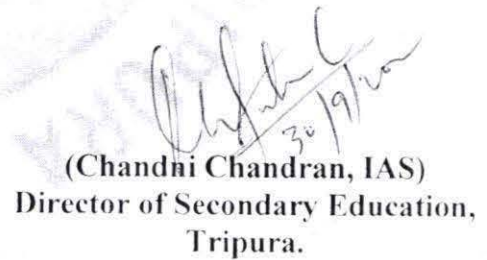 30/9/20
(Chandni Chandran, IAS)
Director of Secondary Education,
Tripura.